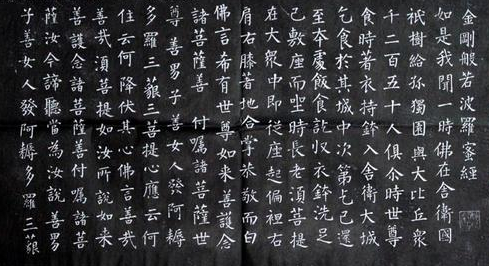 金剛般若波羅蜜經
如是我聞一時佛在舍衛國
祇樹給孤獨園與大比丘衆
千二百五十人俱尒時世尊
食時著衣持鉢入舍衛大城
乞食於其城中次第乞已還
至本處飯食訖収衣鉢洗足
已敷座而坐時長老湏菩提
在大衆中即從座起偏袒右
肩右膝著地合掌恭敬而白
佛言希有世尊如来善護念
諸菩薩善付囑諸菩薩世
尊善男子善女人發阿耨
多羅三藐三菩提心應云何
住云何降伏其心佛言善哉
善哉湏菩提如汝所說如来
善護念諸菩薩善付囑諸菩
薩汝今諦聽當為汝說善男
子善女人發阿耨多羅三藐